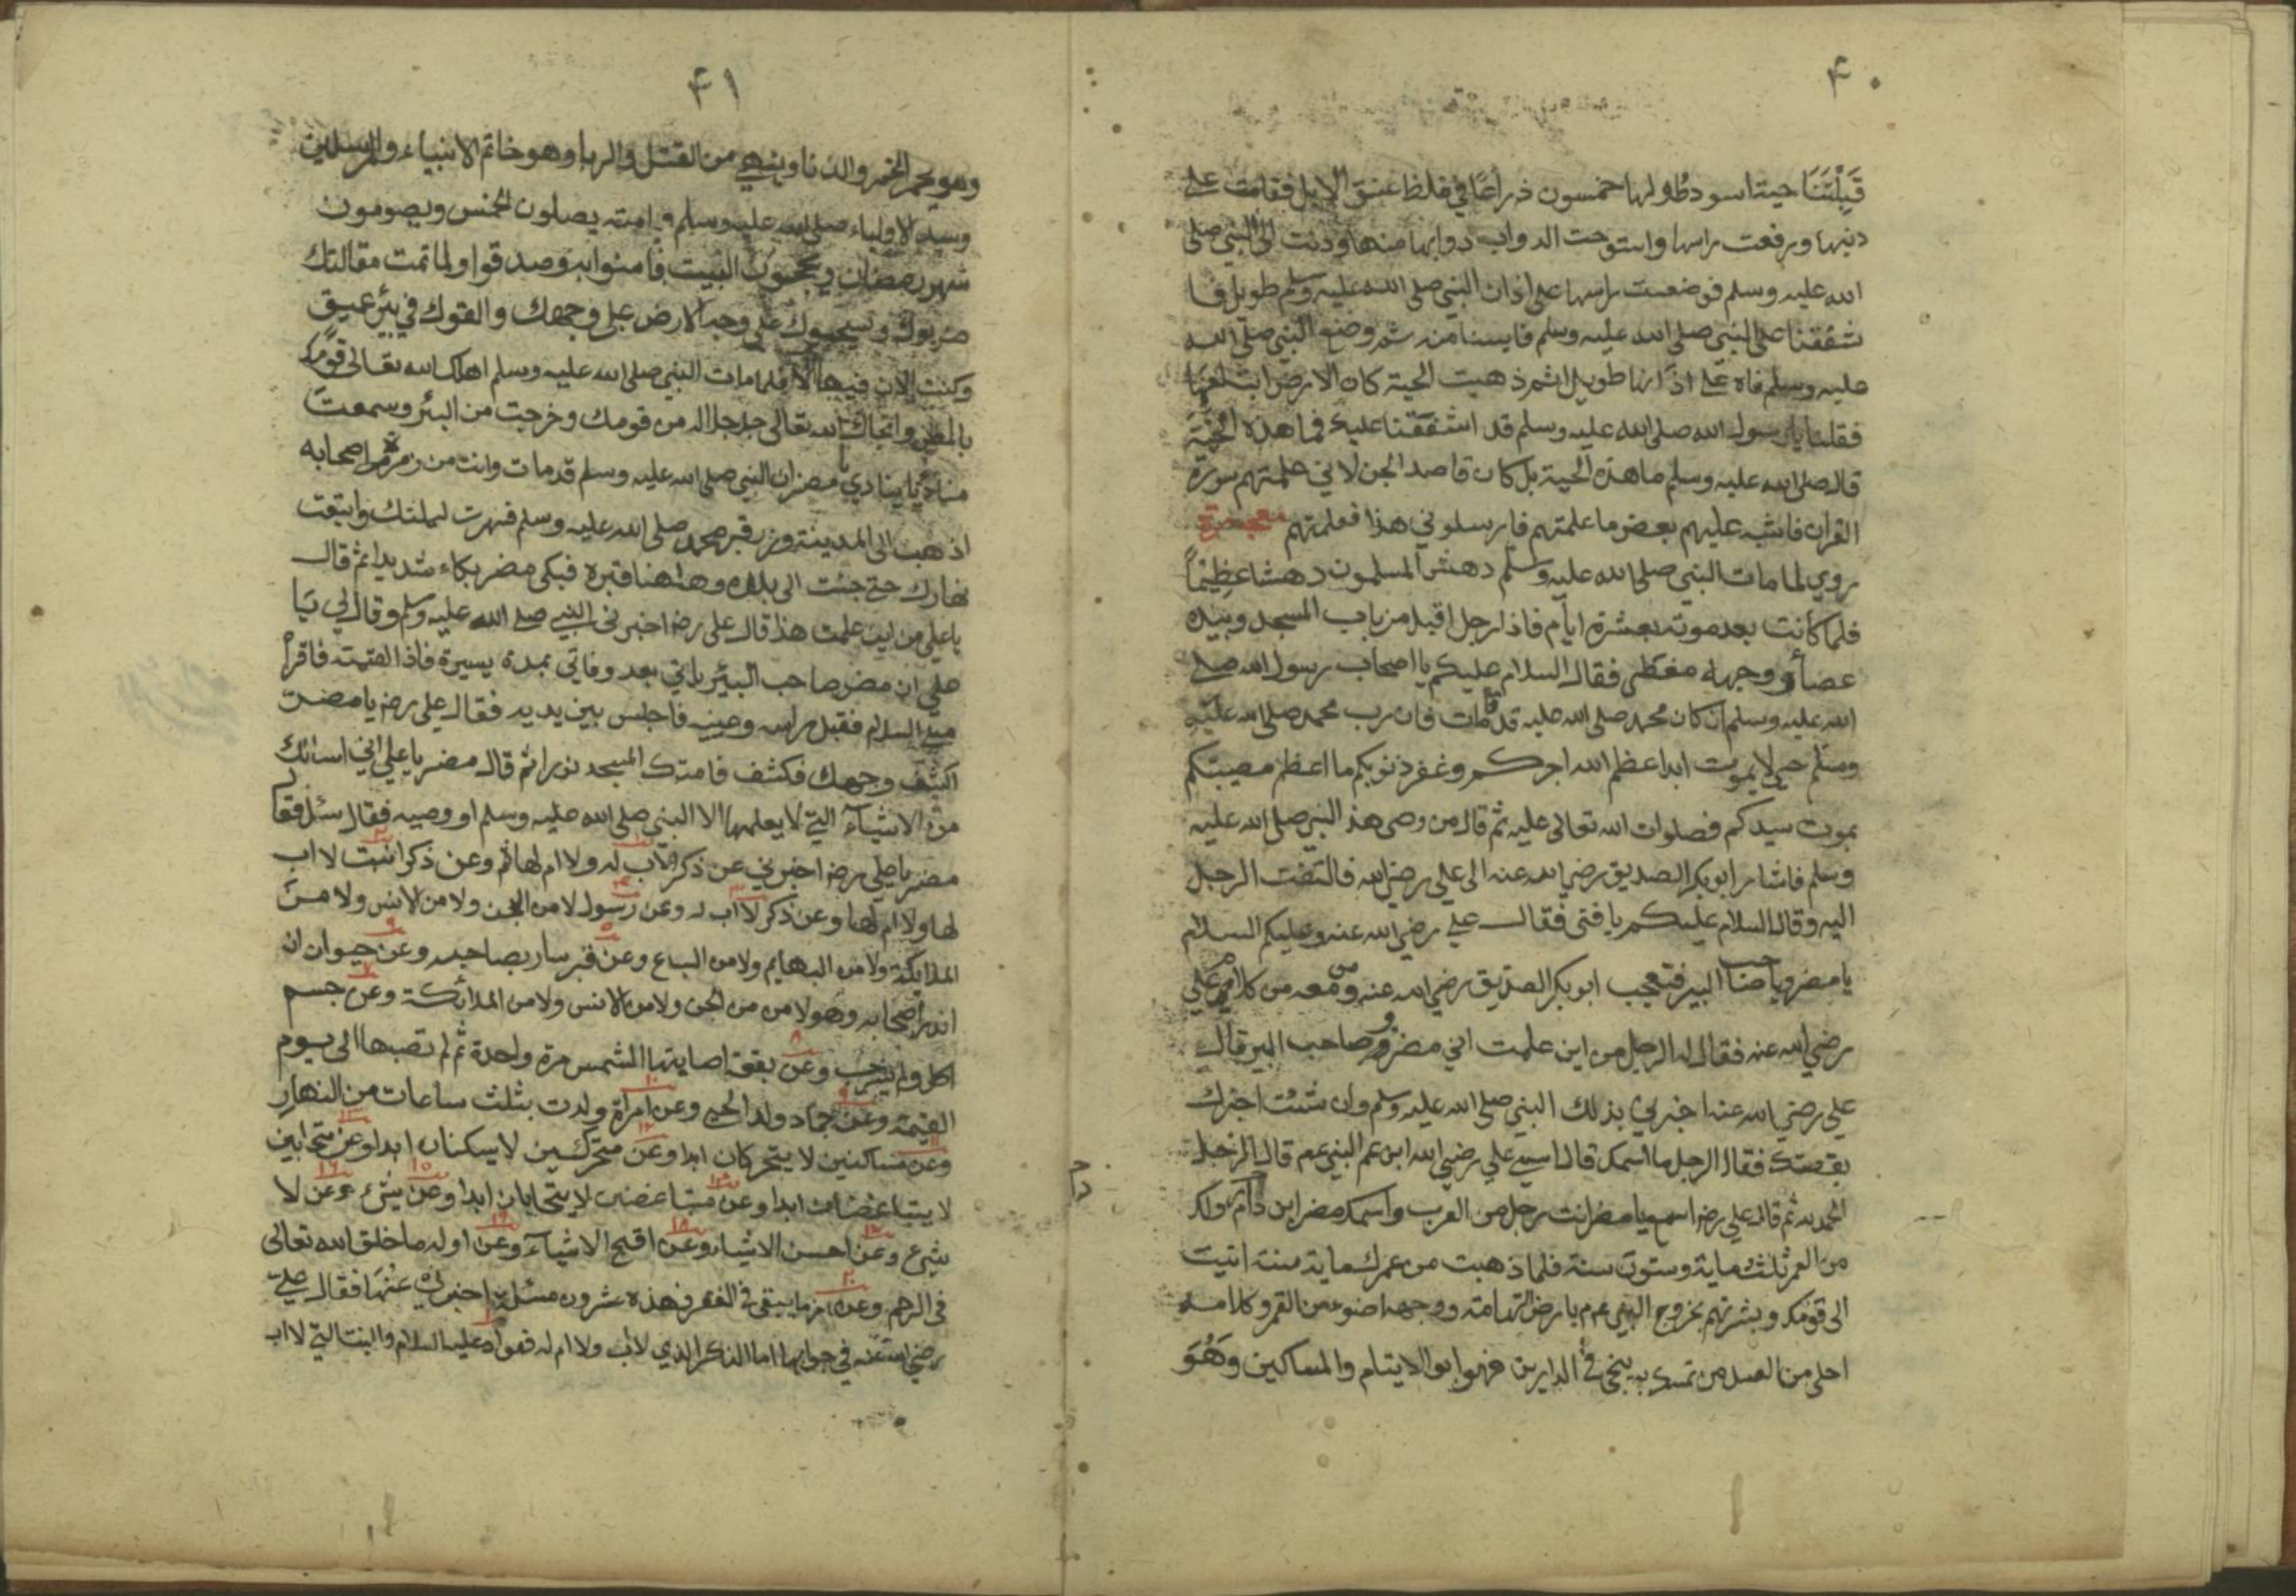 ۴۰
قبلتنا حية اسود طولها خمسون ذراعًا في غلظ عنق الابل فقامت على
ذنبها ورفعت راسها واستوحت الدواب دوابها منها ودنت الى النبي صلى
الله عليه وسلم فوضعت راسها على اذان النبي صلى الله عليه وسلم طويل فا
شفقنا على النبي صلى الله عليه وسلم فايسنا منه ثم وضع النبي صلى الله
عليه وسلم فاه على اذانها طويل اثم ذهبت الحية كان الارض ابتلعها
فقلنا يا رسول الله صلى الله عليه وسلم قد اشفقنا عليك فما هذه الحية
قال صلى الله عليه وسلم ما هذه الحية بل كان قاصد الجن لاني علمتهم سورة
القران فاشبه عليهم بعض ما علمتهم فارسلوني هذا فعلمتهم معجزة
روي لما مات النبي صلى الله عليه وسلم دهش المسلمون دهشا عظيمًا
فلما كانت بعد موته بعشرة ايام فاذا رجل اقبل من باب المسجد وبيده
عصا ووجهه مغطى فقال السلام عليكم يا اصحاب رسول الله صلى
الله عليه وسلم ان كان محمد صلى الله عليه قد مات فان رب محمد صلى الله عليه
وسلم حي لا يموت ابدا عظم الله اجركم وغفر ذنوبكم ما اعظم مصيبتكم
بموت سيدكم فصلوات الله تعالى عليه ثم قال من وصى هذ النبي صلى الله عليه
وسلم فاشار ابوبكر الصديق رضي الله عنه الى علي رضي الله فالتفت الرجل
اليه وقال السلام عليكم يا فتى فقال علي رضي الله عنه وعليكم السلام
يا مضر ويا صاحب البير فتعجب ابوبكر الصديق رضي الله عنه ومن معه من كلام علي
رضي الله عنه فقال له الرجل من اين علمت اني مضر وصاحب البير قال
علي رضي الله عنه اخبرني بذلك النبي صلى الله عليه وسلم وان شئت اخبرك
بقصتك فقال الرجل ما اسمك قال اسمي علي رضي الله ابن عم النبي عم قال الرجل
الحمد لله ثم قال علي رضه اسمع يا مضر انت رجل من العرب واسمك مضر ابن دارم ولك
من العمر ثلثماية وستون سنة فلما ذهبت من عمرك ماية سنة اتيت
الى قومك وبشرتهم بخروج النبي عم بارض التهامة ووجهه اضوء من القمر وكلامه
احلى من العسل من تمسك به ينجى في الدارين فهو ابو الايتام والمساكين وهو
۴۱
وهو يحرم الخمر والزنا وينهى من القتل والربا وهو خاتم الانبياء والمرسلين
وسيد الاولياء صلى الله عليه وسلم وامته يصلون الخمس ويصومون
شهر رمضان ويحجون البيت فامنوا به وصدقوا ولما تمت مقالتك
ضربوك وسحبوك على وجه الارض على وجهك والقوك في بئر عميق
وكنت الان فيها فلما مات النبي صلى الله عليه وسلم اهلك الله تعالى قومك
وانجاك الله تعالى جل جلاله من قومك وخرجت من البئر وسمعت
مناديًا ينادي يا مضر ان النبي صلى الله عليه وسلم قد مات وانت من زمرة اصحابه
اذهب الى المدينة وزر قبر محمد صلى الله عليه وسلم فسرت ليلتك
نهارك حتى جئت الى بلده وهاهنا قبره فبكى مضر بكاء شديدا ثم قال
يا علي من اين علمت هذا قال علي رضه اخبرني النبي صلى الله عليه وسلم وقال لي يا
علي ان مضر صاحب البئر ياتي بعد وفاتي بمدة يسيرة فاذا لقيته فاقرأ
مني السلام فقبل راسه وعينيه فاجلس بين يديه فقال علي رضه يا مضر
اكشف وجهك فكشف فامتلأ المسجد نورا ثم قال مضر يا علي اني اسئلك
من الاشياء التي لا يعلمها الا النبي صلى الله عليه وسلم او وصيه فقال سئل فقال
مضر يا علي رضه اخبرني عن ذكر لا اب له ولا ام له وعن ذكر انثى لا اب
لها ولا ام لها وعن ذكر لا اب له وعن رسول لا من الجن ولا من الانس ولا من
الملايكة ولا من البهايم ولا من السباع وعن قبر سار بصاحبه وعن حيوان ان
انذر اصحابه وهو لا من الجن ولا من الانس ولا من الملائكة وعن جسم
اكل ولم يشرب وعن بقعة اصابتها الشمس مرة واحدة ثم لم تصبها الى يوم
القيمة وعن جماد ولد الحي وعن امراة ولدت بثلث ساعات من النهار
وعن ساكنين لا يتحركان ابدا وعن متحركين لا يسكنان ابدا وعن متحابين
لا يتباغضان ابدا وعن متباغضين لا يتحابان ابدا وعن شيء وعن لا
شيء وعن احسن الاشياء وعن اقبح الاشياء وعن اول ما خلق الله تعالى
في الرحم وعن اخر ما يبقى في القبر فهذه عشرون مسئلة اخبرني عنها فقال علي
رضي الله عنه في جوابها اما الذكر الذي لا اب ولا ام له فهو ادم عليه السلام والبنت التي لا اب